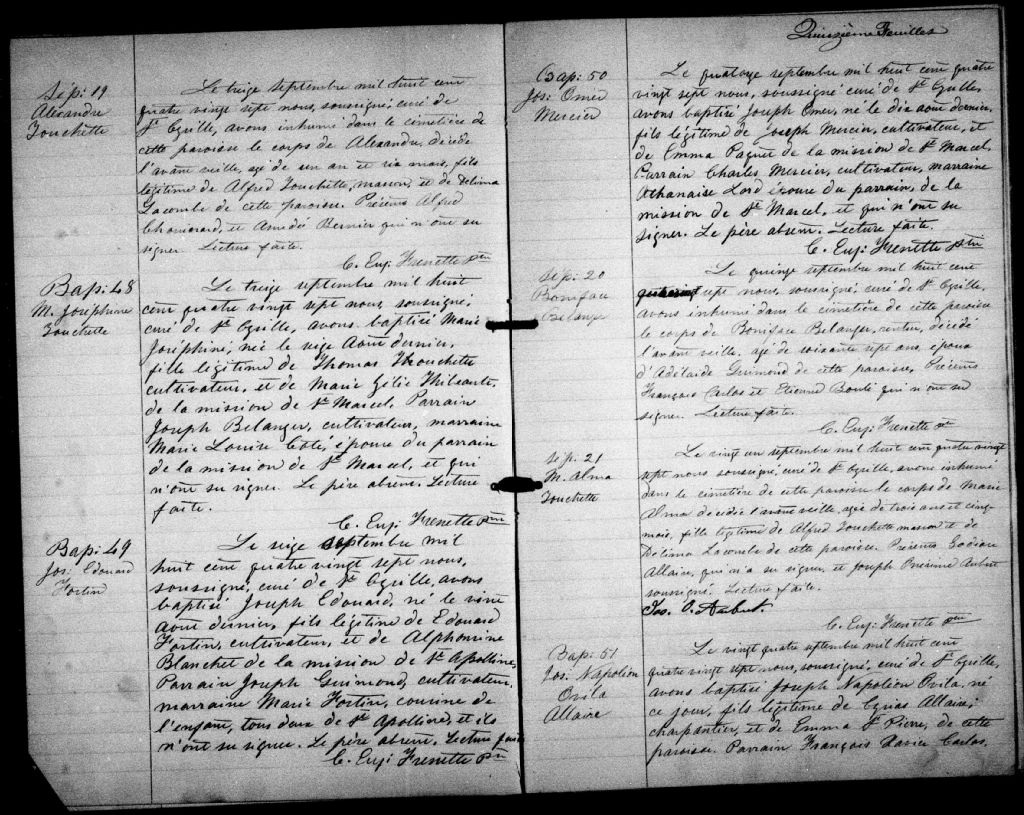 Sép: 19
Alexandre
Touchette
Le treize septembre mil huit cent
quatre vingt sept nous, soussigné, curé de
St Cyrille, avons inhumé dans le cimetière de
cette paroisse le corps de Alexandre, décédé
l'avant veille, agé de un an et six mois, fils
légitime de Alfred Touchette, masson, et de Délima
Lacombe de cette paroisse. Présents Alfred
Chouinard, et Amédé Bernier qui n'ont su
signer. Lecture faite.
C. Eug: Frenette ptre
Bap: 48
M. Joséphine
Touchette
Le treize septembre mil huit
cent quatre vingt sept nous, soussigné,
curé de St Cyrille, avons baptisé Marie
Joséphine, née le
Août dernier,
fille légitime de Thomas Thouchette
cultivateur, et de Marie Zélie Thibeault,
de la mission de St Marcel. Parrain
Joseph Belanger, cultivateur, marraine
Marie Louise Coté, épouse du parrain
de la mission de St Marcel, et qui
n'ont su signer. Le père absent. Lecture
faite.
C. Eug: Frenette ptre
Bap: 49
Jos: Edouard
Fortin
Le seize septembre mil
huit cent quatre vingt sept nous,
soussigné, curé de St Cyrille, avons
baptisé Joseph Edouard, né le vint
Août dernier, fils légitime de Edouard
Fortin, cultivateur, et de Alphonsine
Blanchet de la mission de Ste Apolline,
Parrain Joseph Guimond, cultivateur,
marraine Marie Fortin, cousine de
l'enfant, tous deux de Ste Apolline, et ils
n'ont su signer. Le père absent. Lecture faite
C. Eug: Frenette ptre
Quinzième Feuillet
Bap: 50
Jos: Omer
Mercier
Le quatorze septembre mil huit cent quatre
vingt sept nous, soussigné curé de St Cyrille,
avons baptisé Joseph Omer, né le dix aout dernier,
fils légitime de Joseph Mercier, cultivateur, et
de Emma Paquet de la mission de St Marcel,
Parrain Charles Mercier, cultivateur, marraine
Athanaise Lord épouse du parrain, de la
mission de St Marcel, et qui n'ont su
signer. Le père absent. Lecture faite.
C. Eug: Frenette ptre
Sép: 20
Boniface
Belanger
Le quinze septembre mil huit cent
sept nous, soussigné, curé de St Cyrille,
avons inhumé dans le cimetière de cette paroisse
le corps de Boniface Belanger, rentier, décédé
l'avant veille, agé de soixante sept ans, époux
d'Adélaïde Guimond de cette paroisse, Présents
François Carlos et Etienne Boulé qui n'ont su
signer. Lecture faite.
C. Eug: Frenette ptre
Sép: 21
M. Alma
Touchette
Le vingt un septembre mil huit cent quatre vingt
sept nous soussigné, curé de St Cyrille, avons inhumé
dans le cimetière de cette paroisse le corps de Marie
Alma décédée l'avant veille, agée de trois ans et cinq
mois, fille légitime de Alfred Touchette masson et de
Délima Lacombe de cette paroisse. Présents
Allaire, qui n'a su signer, et Joseph Onésime Aubut
soussigné. Lecture faite.
Jos. O. Aubut.
C. Eug: Frenette ptre
Bap: 51
Jos: Napoléon
Ovila
Allaire
Le vingt quatre septembre mil huit cent
quatre vingt sept nous, soussigné, curé de St Cyrille,
avons baptisé Joseph Napoléon Ovila, né
ce jour, fils légitime de Cyriac Allaire,
charpentier, et de Emma St Pierre, de cette
paroisse. Parrain François Xavier Carlos,